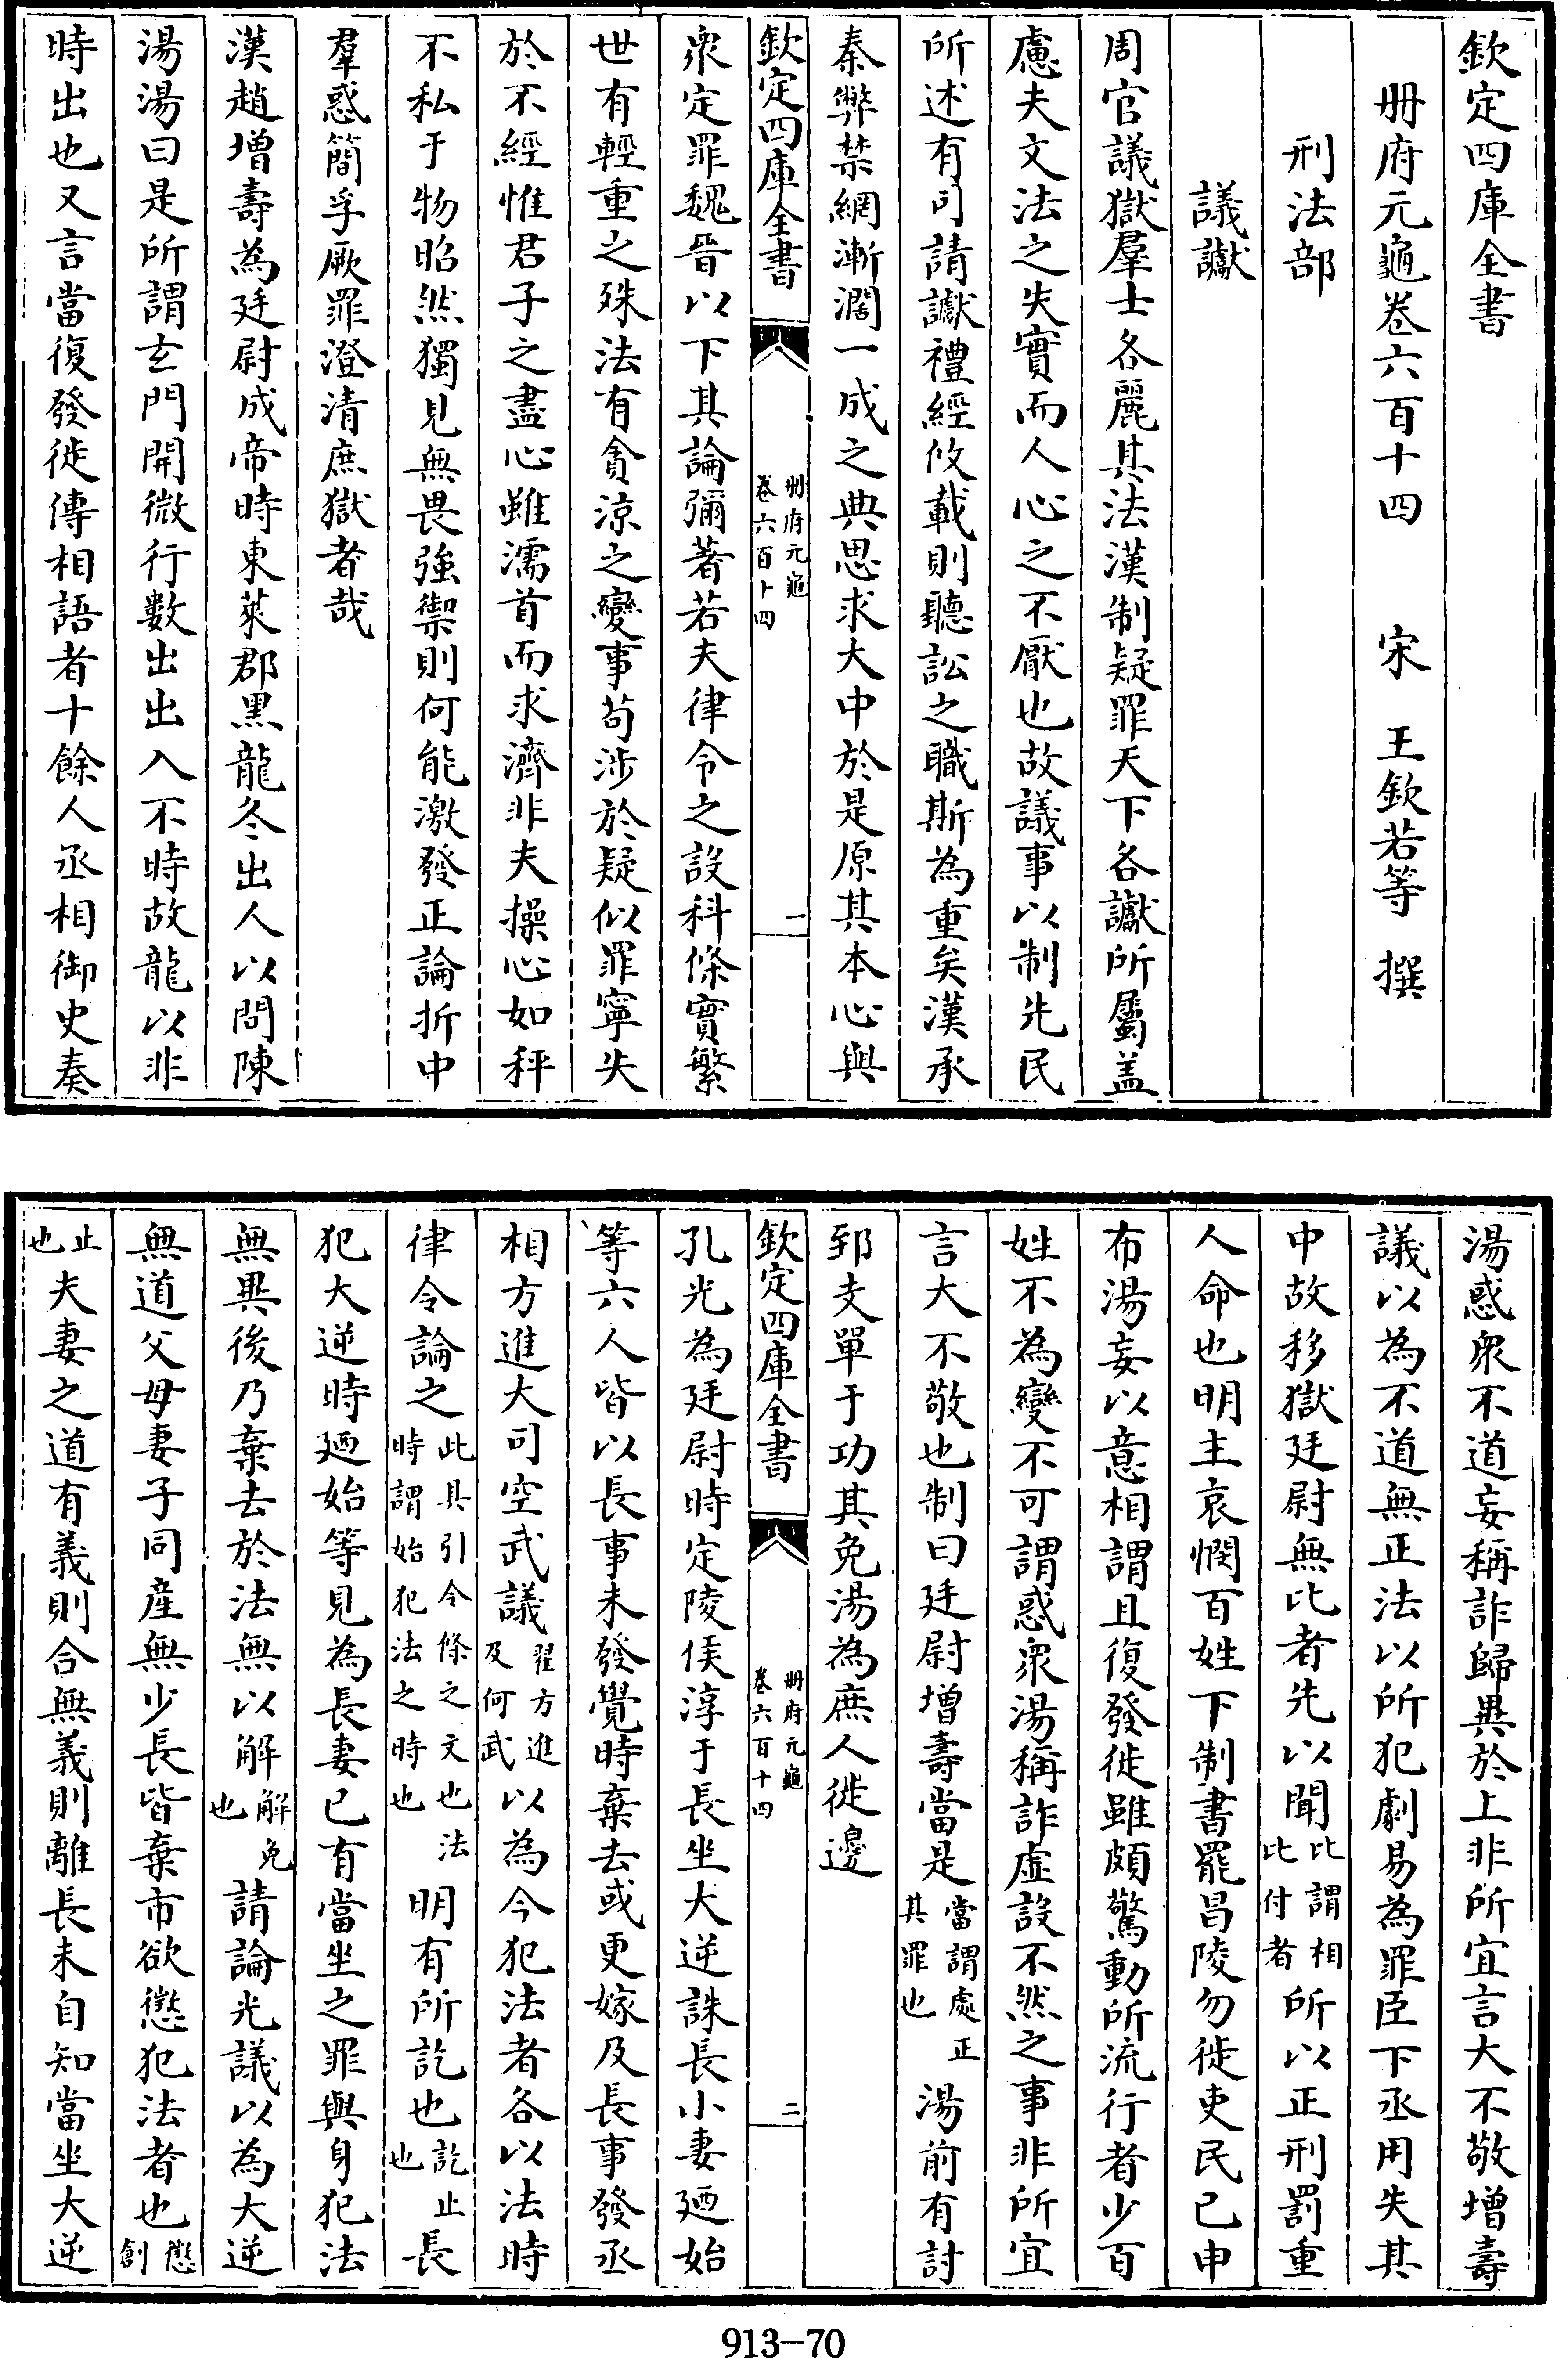 欽定四庫全書
冊府元龜卷六百十四　宋　王欽若等　撰
刑法部
議讞
周官議獄羣士各麗其法漢制疑罪天下各讞所屬盖
慮夫文法之失實而人心之不厭也故議事以制先民
所述有司請讞禮經攸載則聽訟之職斯為重矣漢承
秦弊禁網漸濶一成之典思求大中於是原其本心與
欽定四庫全書
冊府元龜
卷六百十四
一
衆定罪魏晉以下其論彌著若夫律令之設科條實繁
世有輕重之殊法有貪涼之變事茍涉於疑似罪寧失
於不經惟君子之盡心雖濡首而求濟非夫操心如秤
不私于物昭然獨見無畏強禦則何能激發正論折中
羣惑簡孚厥罪澄清庶獄者哉
漢趙增壽為廷尉成帝時東萊郡黑龍冬出人以問陳
湯湯曰是所謂玄門開微行數出出入不時故龍以非
時出也又言當復發徙傳相語者十餘人丞相御史奏
湯惑衆不道妄稱詐歸異於上非所宜言大不敬增壽
議以為不道無正法以所犯劇易為罪臣下丞用失其
中故移獄廷尉無比者先以聞比謂相比付者所以正刑罰重
人命也明主哀憫百姓下制書罷昌陵勿徙吏民已申
布湯妄以意相謂且復發徙雖頗驚動所流行者少百
姓不為變不可謂惑衆湯稱詐虛設不然之事非所宜
言大不敬也制曰廷尉增壽當是當謂處正其罪也湯前有討
郅支單于功其免湯為庶人徙邊
欽定四庫全書
冊府元龜
卷六百十四
二
孔光為廷尉時定陵侯淳于長坐大逆誅長小妻廼始
等六人皆以長事未發覺時棄去或更嫁及長事發丞
相方進大司空武議翟方進及何武以為今犯法者各以法時
律令論之此具引令條之文也法時謂始犯法之時也明有所訖也訖止也長
犯大逆時廼始等見為長妻已有當坐之罪與身犯法
無異後乃棄去於法無以解解免也請論光議以為大逆
無道父母妻子同産無少長皆棄市欲懲犯法者也懲創
止也夫妻之道有義則合無義則離長未自知當坐大逆
913-70